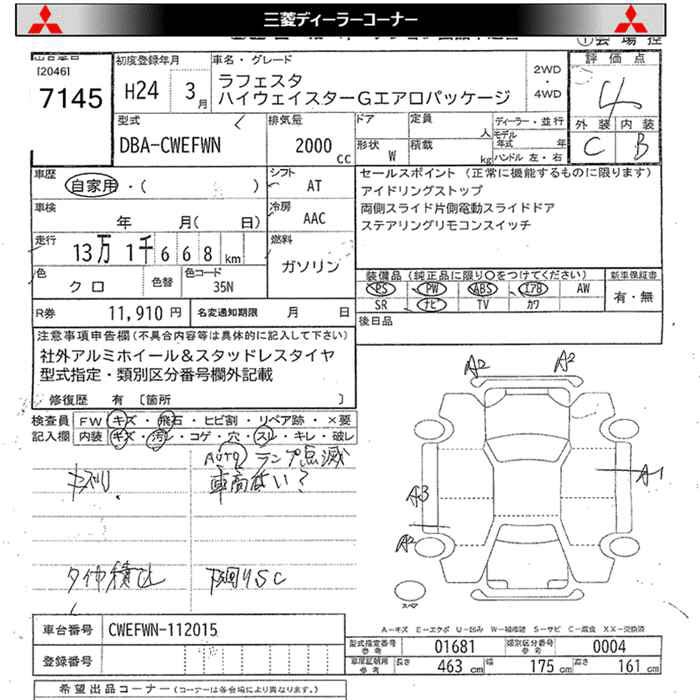 三菱ディーラーコーナー
[2046]
7145
初度登録年月
H24 3月
車名・グレード
ラフェスタ
ハイウェイスターGエアロパッケージ
2WD
・
4WD
評価点
4
外装 内装
C B
型式
DBA-CWEFWN
排気量
2000 cc
ドア
形状 W
定員 人
積載 kg
ディーラー・並行
モデル年式 年
ハンドル 左・右
車歴
自家用・( )
シフト
AT
車検
年 月(日)
冷房
AAC
走行
13万1千668km
燃料
ガソリン
色
クロ
色替
色コード
35N
R券 11,910円
名変通知期限 月 日
セールスポイント (正常に機能するものに限ります)
アイドリングストップ
両側スライド片側電動スライドドア
ステアリングリモコンスイッチ
装備品(純正品に限り○をつけてください)
PS PW ABS エアB AW
SR ナビ TV カワ
新車保証書
有・無
後日品
注意事項申告欄(不具合内容等は具体的に記入して下さい)
社外アルミホイール&スタッドレスタイヤ
型式指定・類別区分番号欄外記載
修復歴 有 [箇所 ]
検査員記入欄
FW キズ・飛石・ヒビ割・リペア跡・×要
内装 キズ・汚レ・コゲ・穴・スレ・キレ・破レ
AUTO ランプ点滅
車高ない?
キズリ
タイヤ積込
下回りSC
A2 A2
A1
A3
A2
スペア
A-キズ E-エクボ U-凹み W-補修跡 S-サビ C-腐食 XX-交換済
車台番号 CWEFWN-112015
登録番号
型式指定番号 参考 01681
類別区分番号 参考 0004
車庫証明用 参考 長さ 463cm 幅 175cm 高さ 161cm
希望出品コーナー(コーナーは各会場により異なります。)